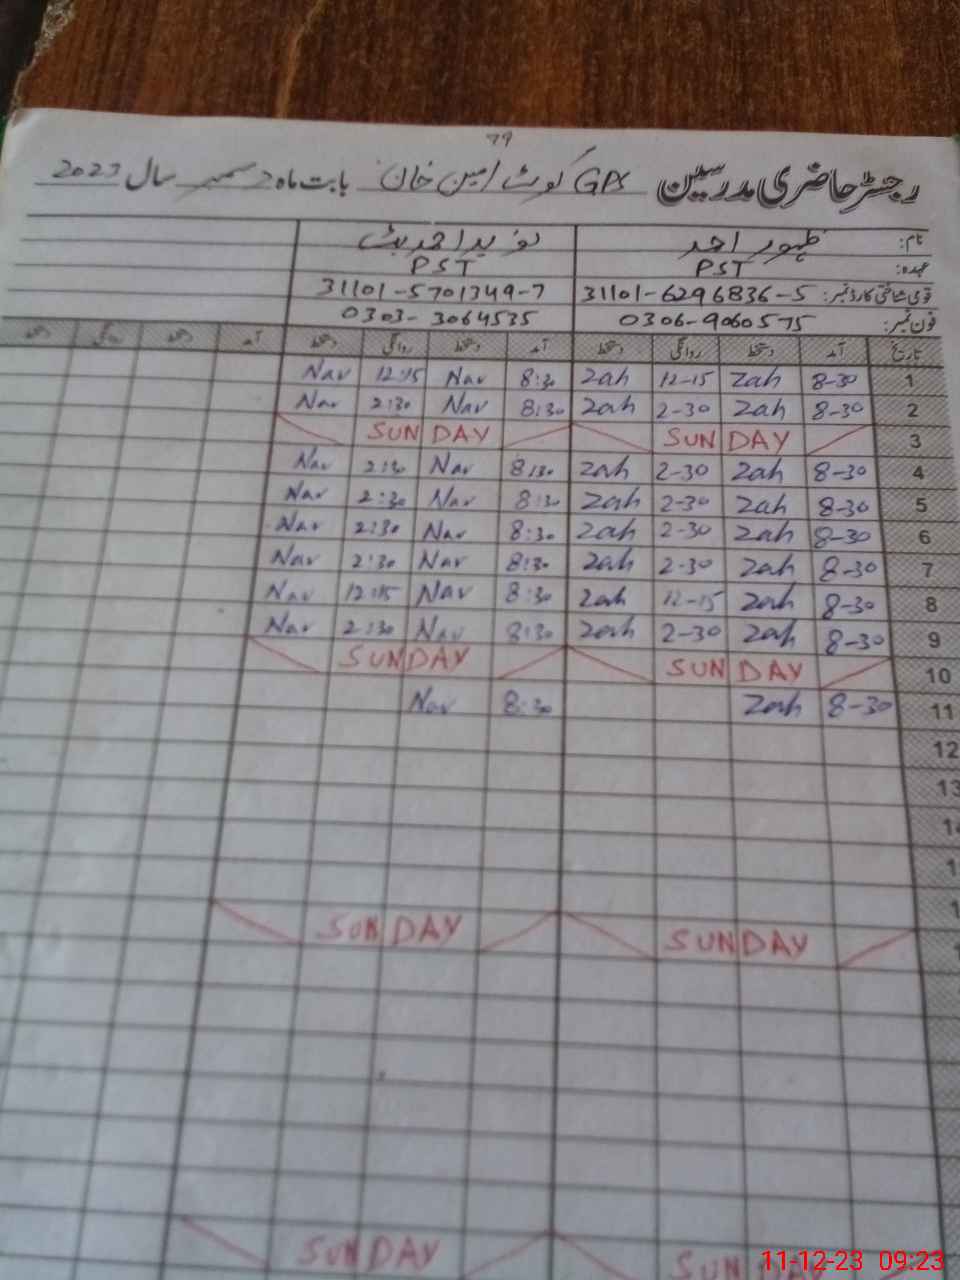 79
رجسٹر حاضری مدرسین GPS کوٹ امین خان بابت ماہ دسمبر سال 2023
نام: ظہور احمد نوید احمد بٹ
عہدہ: PST PST
قومی شناختی کارڈ نمبر: 31101-6296836-5 31101-5701349-7
فون نمبر: 0306-9060575 0303-3064535
تاریخ آمد دستخط روانگی دستخط آمد دستخط روانگی دستخط آمد دستخط روانگی دستخط
1 8-30 Zah 12-15 Zah 8:30 Nav 12:15 Nav
2 8-30 Zah 2-30 Zah 8:30 Nav 2:30 Nav
3 SUNDAY SUNDAY
4 8-30 Zah 2-30 Zah 8:30 Nav 2:30 Nav
5 8-30 Zah 2-30 Zah 8:30 Nav 2:30 Nav
6 8-30 Zah 2-30 Zah 8:30 Nav 2:30 Nav
7 8-30 Zah 2-30 Zah 8:30 Nav 2:30 Nav
8 8-30 Zah 12-15 Zah 8:30 Nav 12:15 Nav
9 8-30 Zah 2-30 Zah 8:30 Nav 2:30 Nav
10 SUNDAY SUNDAY
11 8-30 Zah 8:30 Nav
12
13
14
SUNDAY SUNDAY
SUNDAY SUNDAY
11-12-23 09:23